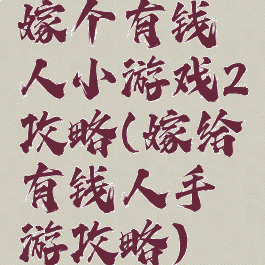 嫁个有钱
人小游戏2
攻略(嫁给
有钱人手
游攻略)